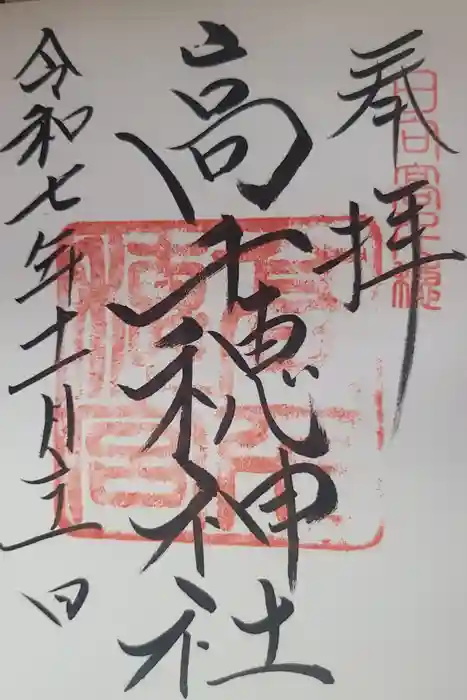 奉拝
日向高千穂
高千穂神社
令和七年十一月五日